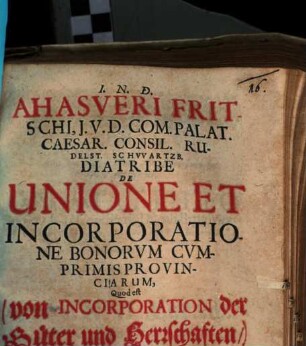 I. N. D.
16.
AHASVERI FRIT-
SCHI, J. V. D. COM. PALAT.
CAESAR. CONSIL. RU-
DELST. SCHVVARTZB.
DIATRIBE
DE
UNIONE ET
INCORPORATIO-
NE BONORVM CVM-
PRIMIS PROVIN-
CIARUM,
Quod est
(von INCORPORATION der
Güter und Herrschaften/)